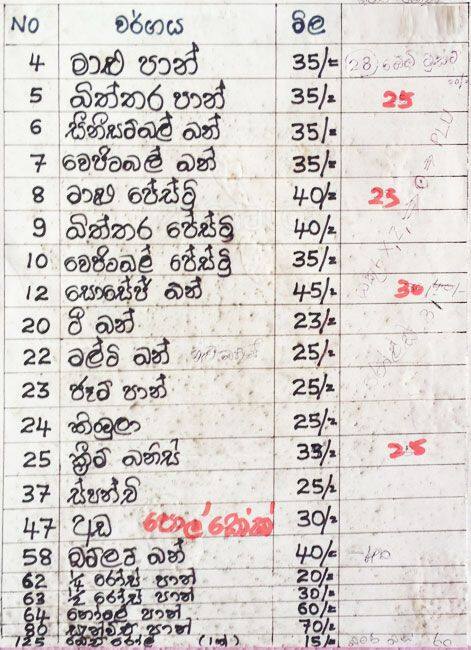 NO වර්ගය මිල
4 මාළු පාන් 35/=
5 බිත්තර පාන් 35/= 25
6 සීනිසම්බල් බන් 35/=
7 වෙජිටබල් බන් 35/=
8 මාළු පේස්ට්‍රි 40/= 25
9 බිත්තර පේස්ට්‍රි 40/=
10 වෙජිටබල් පේස්ට්‍රි 35/=
12 සොසේජ් බන් 45/= 30
20 ටී බන් 23/=
22 මල්ටි බන් 25/=
23 ජෑම් පාන් 25/=
24 කිඹුලා 25/=
25 ක්‍රීම් බනිස් 35/= 25
37 ස්පන්චි 25/=
47 අඩ පොල් කේක් 30/=
58 බටලප් බන් 40/=
62 ¼ රෝස් පාන් 20/=
63 ½ රෝස් පාන් 30/=
64 හෝල් පාන් 60/=
80 සැන්විච් පාන් 70/=
125 15/=